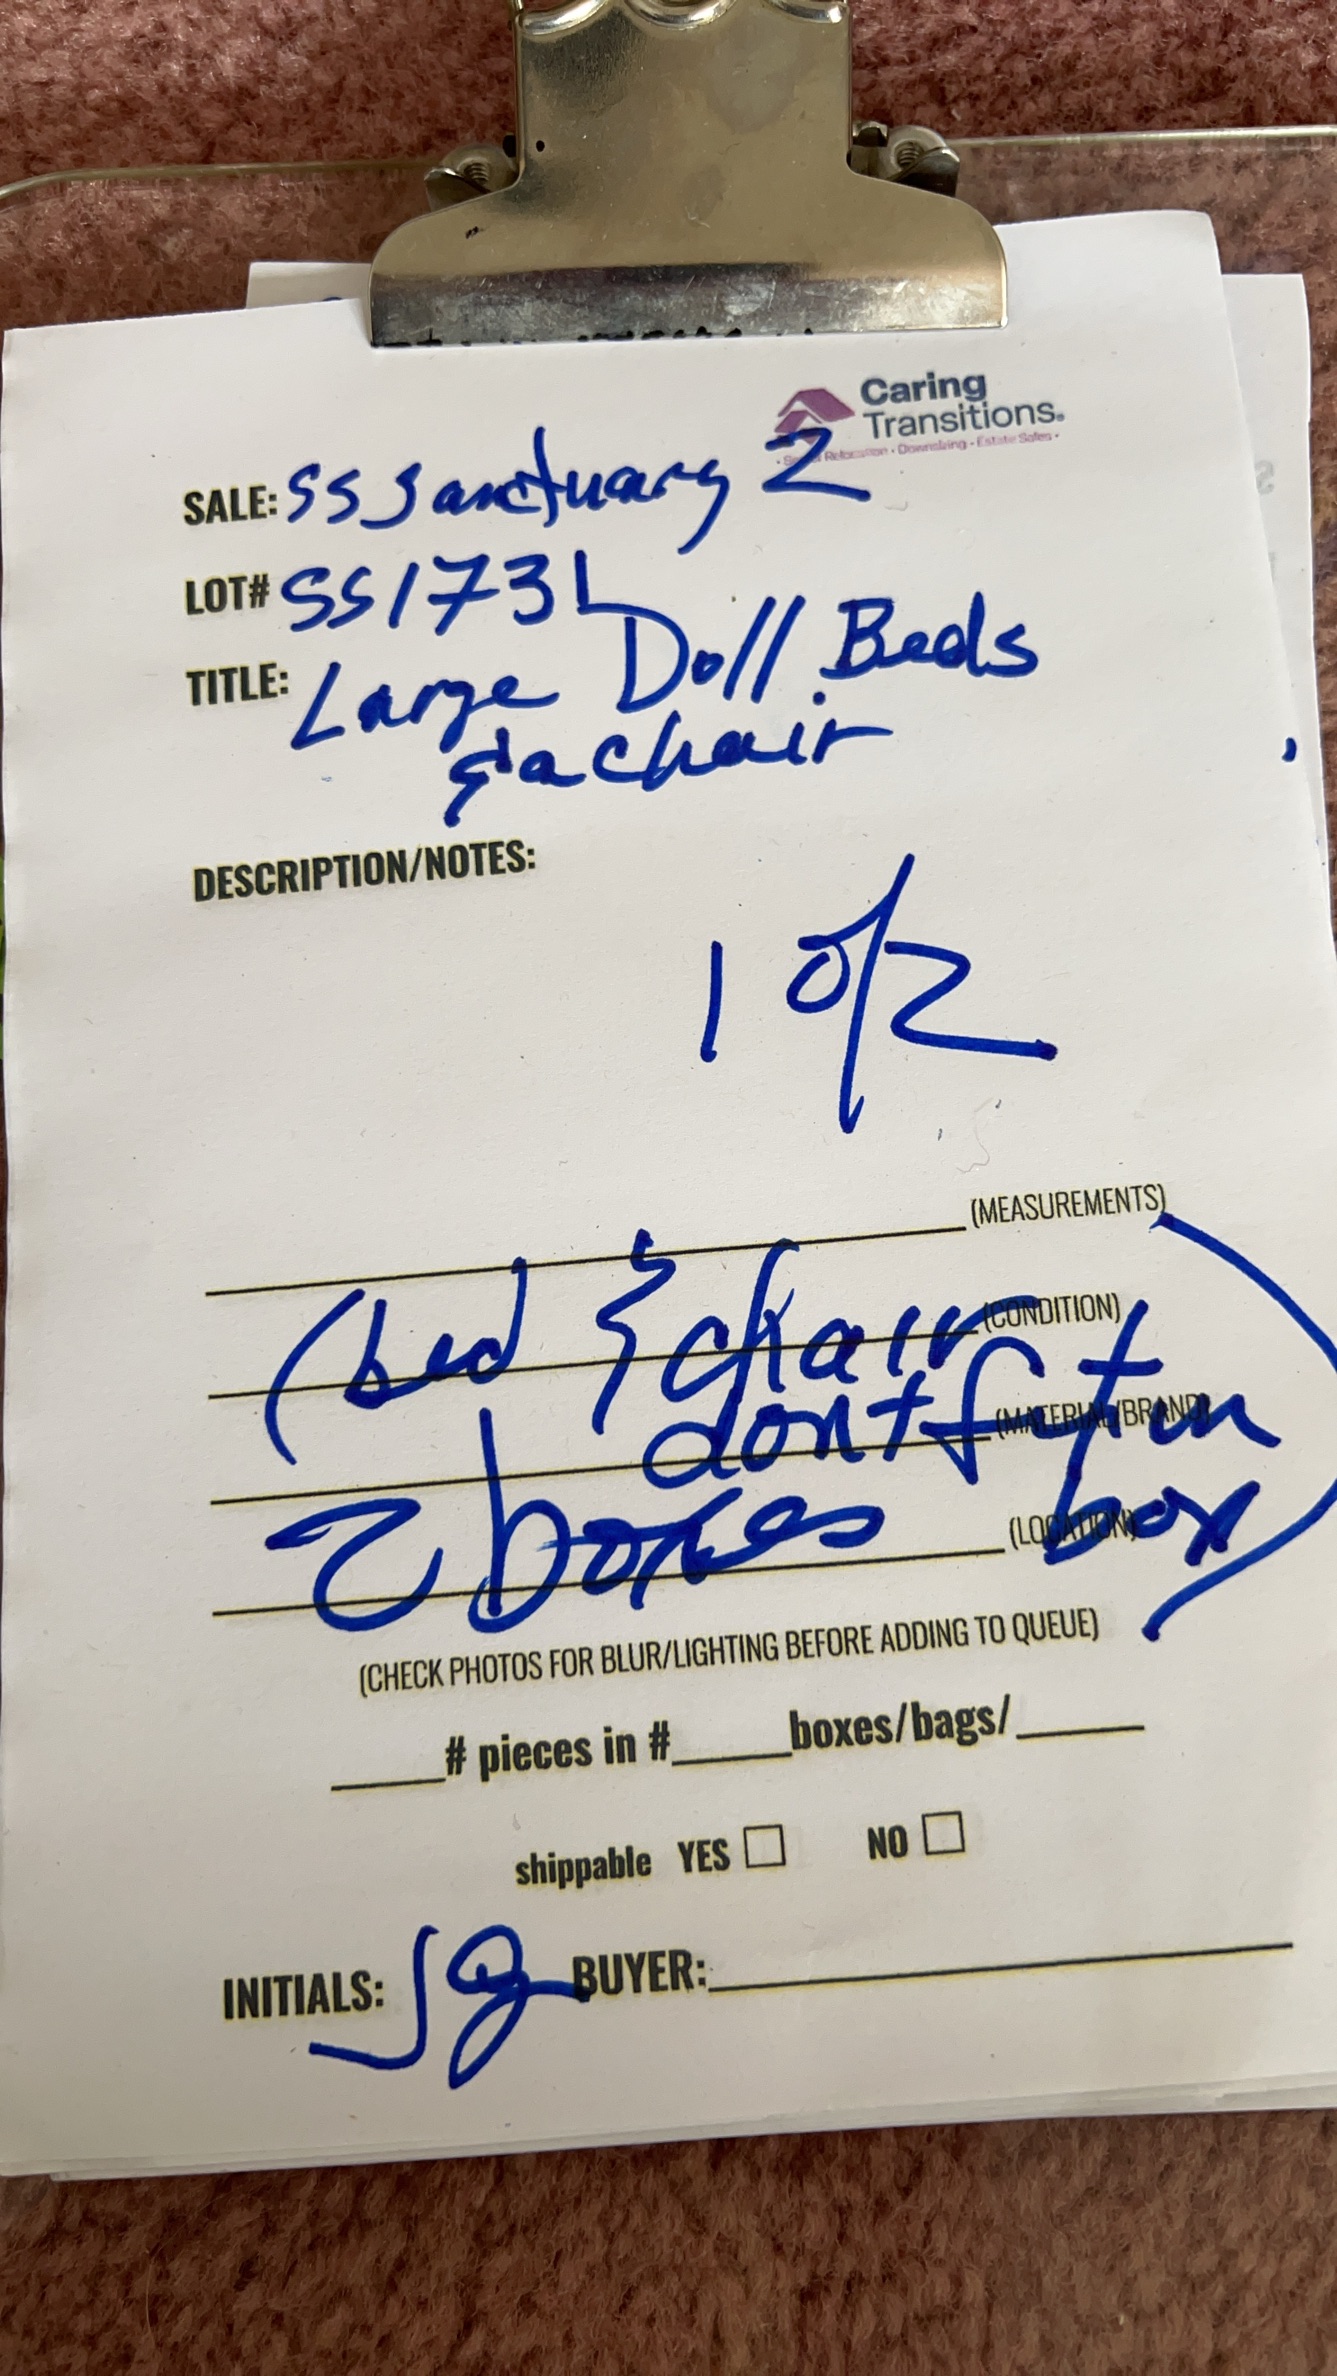 Caring
Transitions.
Senior Relocation • Downsizing • Estate Sales •
SALE: SS Sanctuary 2
LOT# SS1731
TITLE: Large Doll Beds
& a chair
DESCRIPTION/NOTES:
1 of 2
(MEASUREMENTS)
(bed & chair (CONDITION)
dont fit in (MATERIAL/BRAND)
2 boxes (LOCATION) box)
(CHECK PHOTOS FOR BLUR/LIGHTING BEFORE ADDING TO QUEUE)
____# pieces in #____boxes/bags/____
shippable YES ☐ NO ☐
INITIALS: BUYER:____